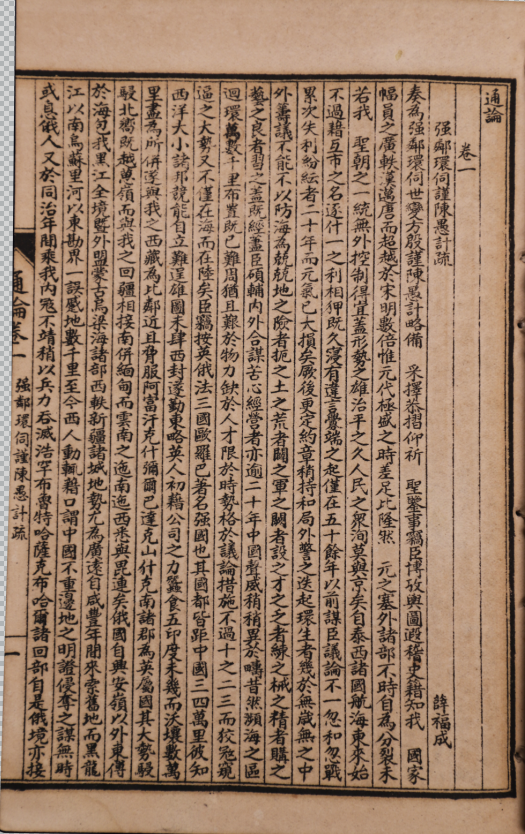 通論
卷一
强鄰環伺謹陳愚計疏　薛福成
奏為强鄰環伺世變方殷謹陳愚計略備　采擇恭摺仰祈　聖鑒事竊臣博攷輿圖遐稽史籍知我　國家
幅員之廣軼漢邁唐而超越於宋明數倍惟元代極盛之時差足比隆然　元之塞外諸部不時自為分裂未
若我　聖朝之一統無外控制得宜蓋形勢之雄治平之久人民之衆洵莫與京矣自泰西諸國航海東來始
不過藉互市之名逐什一之利相狎旣久寖有違言釁端之起僅在五十餘年以前謀臣議論不一忽和忽戰
累次失利紛紜者二十年而元氣已大損矣厥後更定約章稍持和局外警之迭起環生者幾於無歲無之中
外籌議不能不以防海為兢兢地之險者扼之土之荒者闢之軍之闕者設之才之乏者練之械之精者購之
藝之良者習之蓋旣經藎臣碩輔內外合謀苦心經營者亦逾二十年中國聲威稍稍異於疇昔然瀕海之區
迴環萬數千里布置旣已難周猶且艱於物力缺於人才限於時勢格於議論措施不過十之二三而狡寇窺
逼之大勢又不僅在海而在陸矣臣竊按英俄法三國歐羅巴著名强國也其國都皆距中國三四萬里彼知
西洋大小諸邦競能自立難逞雄圖未肆西封遂勤東略英人初藉公司之力蠶食五印度未幾而沃壤數萬
里盡為所併遂與我之西藏為比鄰近且脅服阿富汗克什彌爾巴達克山什克南諸郡為英屬國其大勢駸
駸北嚮旣越蔥嶺而與我之回疆相接南併緬甸而雲南之迤南迤西悉與毘連矣俄國自興安嶺以外東傅
於海匇我黑江全境暨外盟蒙古烏梁海諸部西軼新疆諸城地勢尤為廣遠自咸豐年間來索舊地而黑龍
江以南烏蘇里河以東勘界一誤蹙地數千里至今西人動輒藉口謂中國不重邊地之明證侵奪之謀無時
或息俄人又於同治年間乘我內寇不靖稍以兵力吞滅浩罕布魯特哈薩克布哈爾諸回部自是俄境亦接
通論卷一　强鄰環伺謹陳愚計疏　一